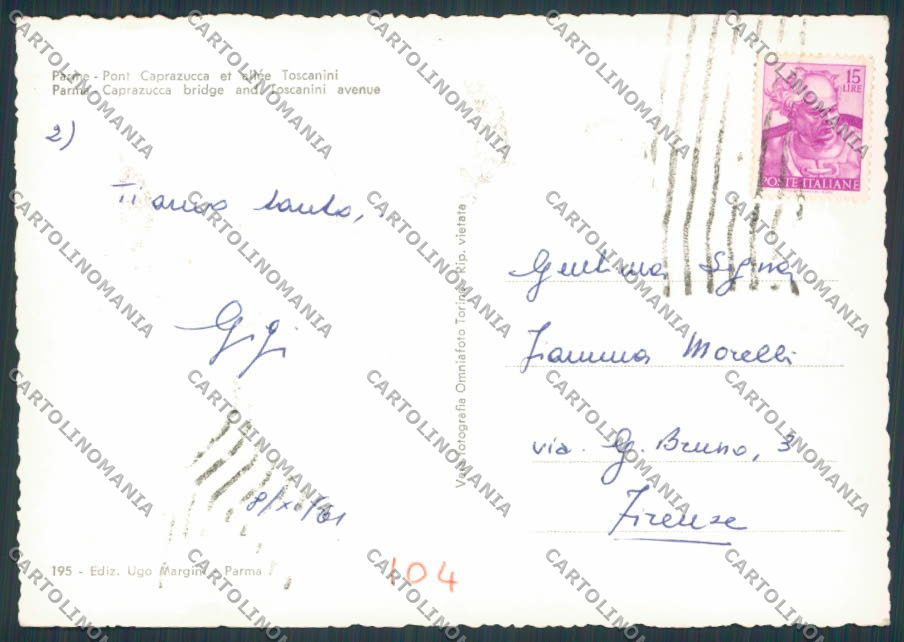 Parme - Pont Caprazucca et allée Toscanini
Parma - Caprazucca bridge and Toscanini avenue
2)
Ti amo tanto,
Gigi
8/X/61
195 - Ediz. Ugo Margini - Parma
104
Vera fotografia Omniafoto Torino - Rip. vietata
15
LIRE
POSTE ITALIANE
Gentma Signa
Fiamma Morelli
via G. Bruno, 3
Firenze
CARTOLINOMANIA